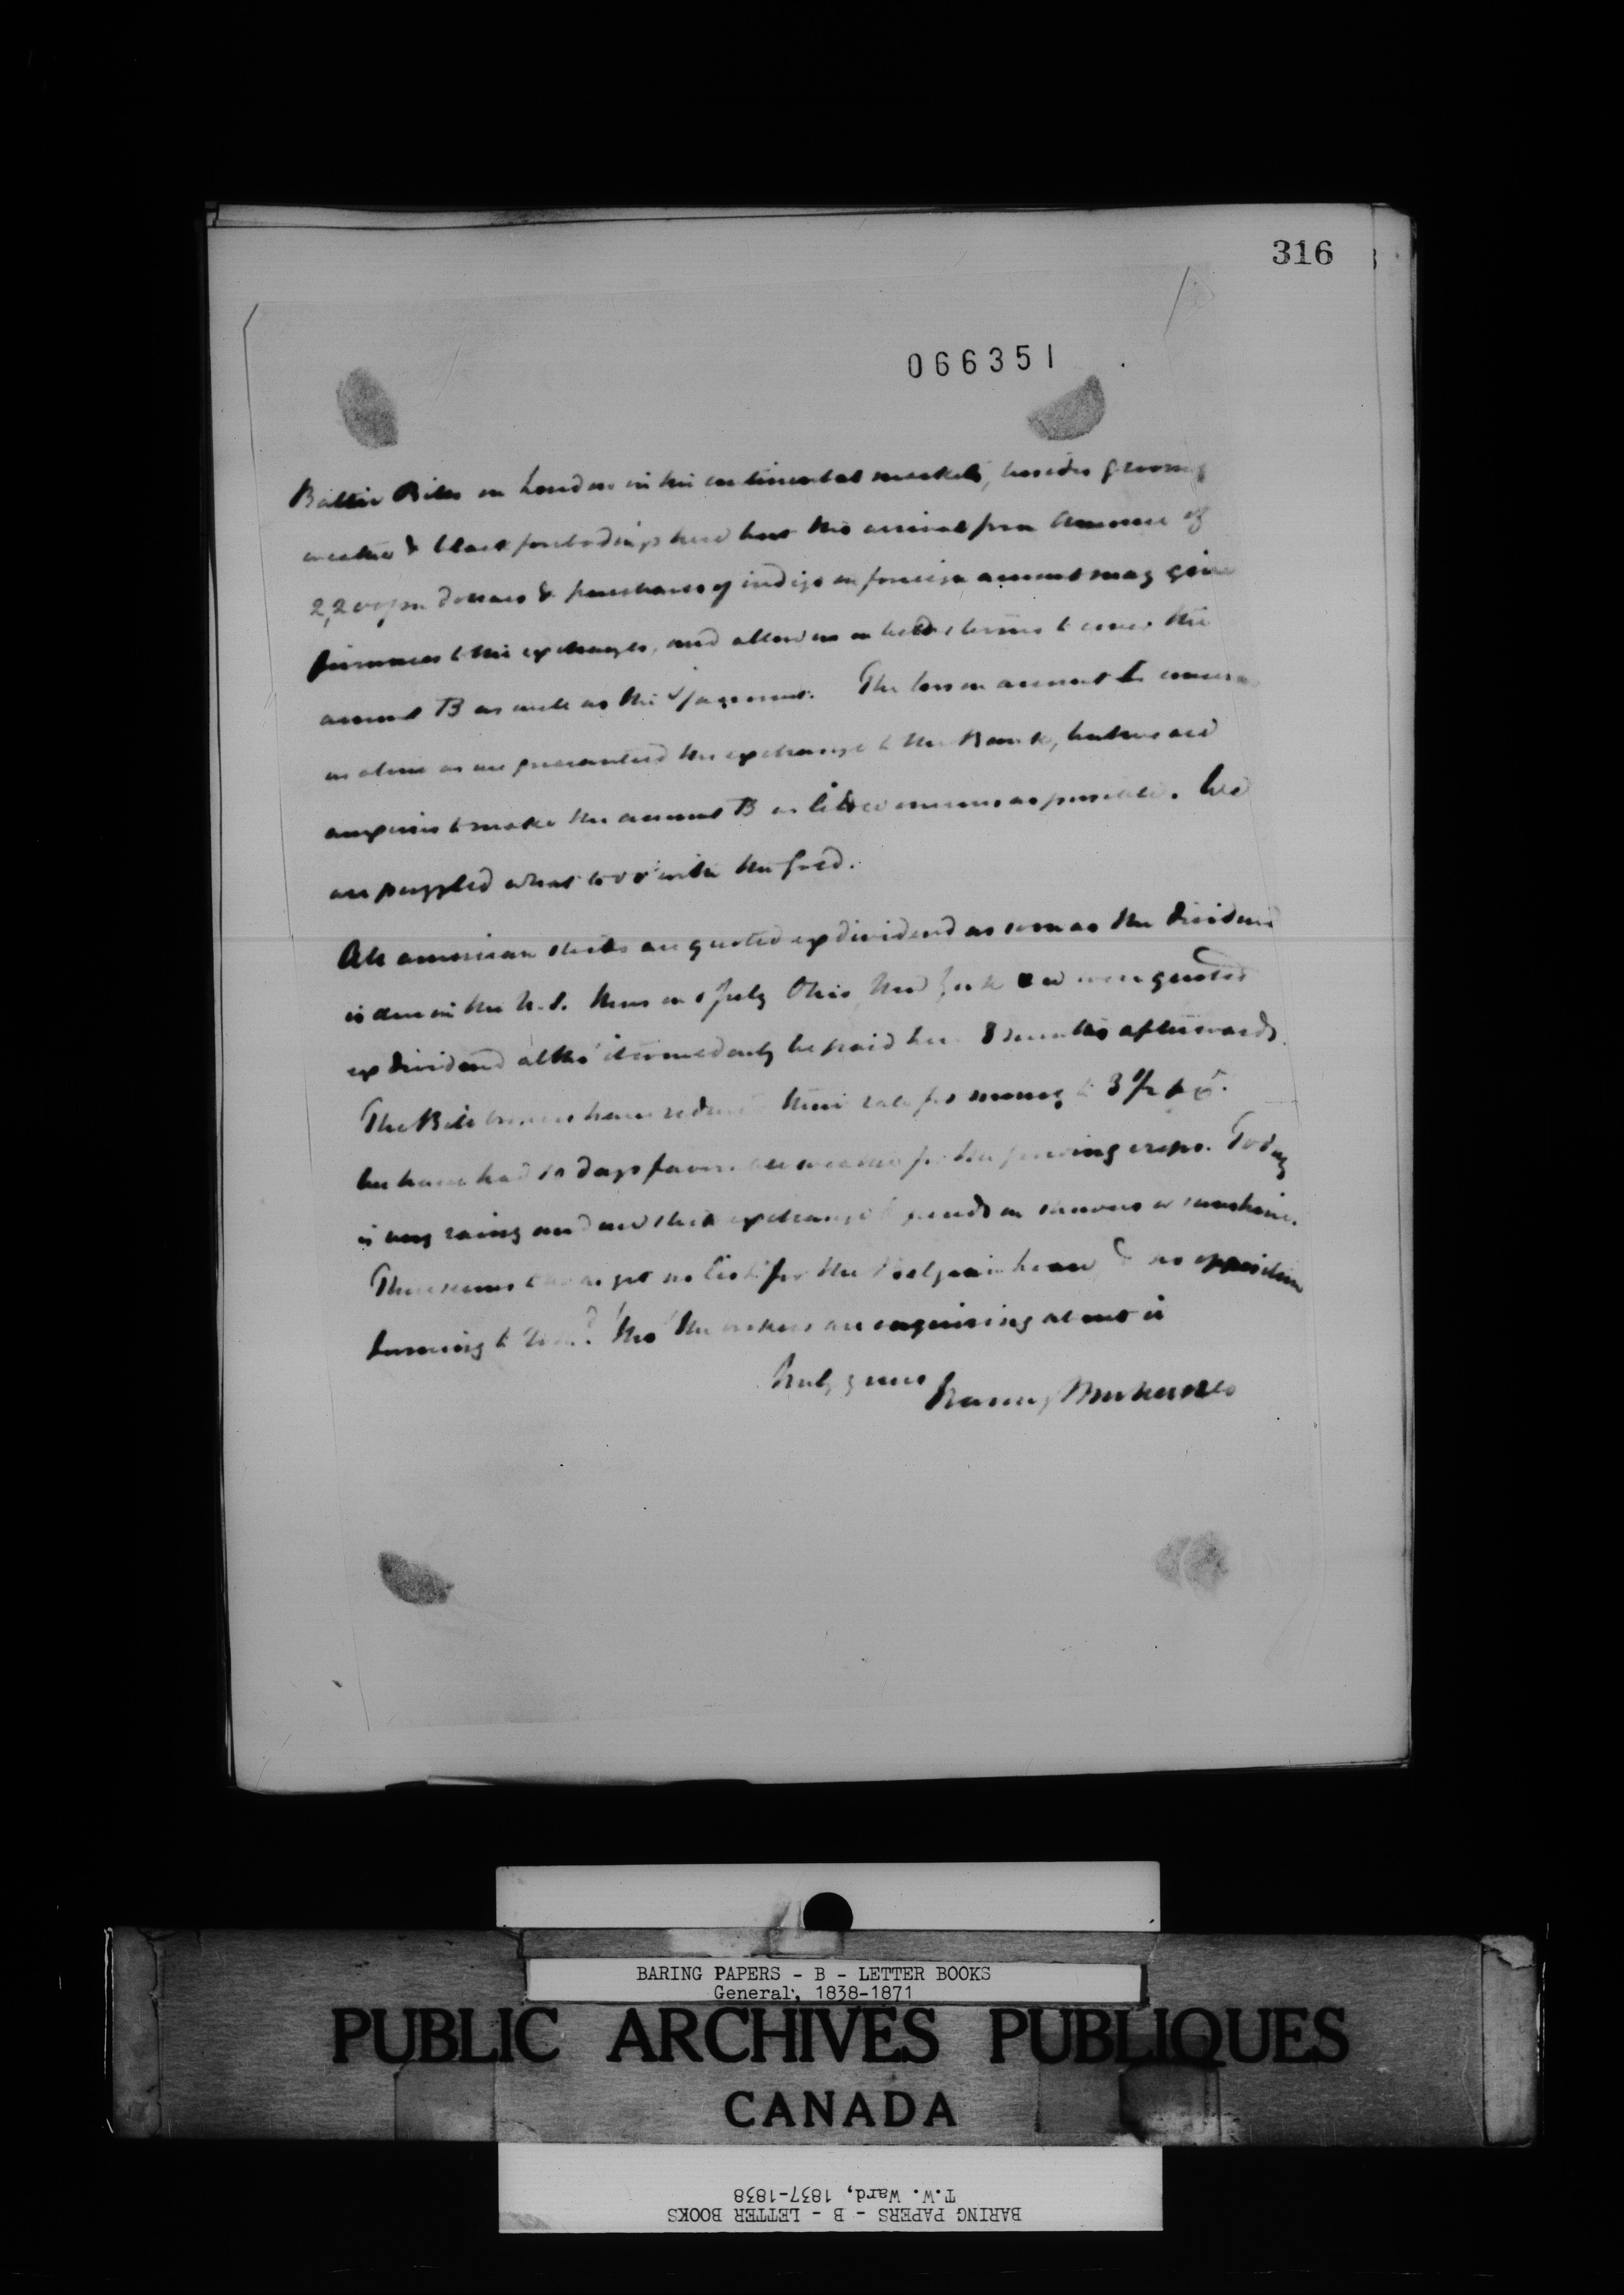 316
066351
Baltic Bills on London in the continental markets, besides gloomy
weather & black forebodings here but the arrival from America of
2,200,000 dollars & purchases of indigo on foreign account may give
firmness to the exchanges, and allow us on better terms to cover the
account B as well as the The loss on account I concerns
us alone as we guaranteed the exchange to the Bank, but we are
anxious to make the account B as little as possible. We
are puzzled what to do with the gold.
All american stocks are quoted ex dividend as soon as the dividend
is due in the U.S. thus on 1 July Ohio, New York were quoted
ex dividend altho' it would only be paid here 3 months afterwards.
The Bill brokers have reduced their rate for money to 3 1/2 p
We have had 10 days favorable weather for the growing crops. Today
is very rainy and our stock exchange depends on showers or sunshine.
There seems to be as yet no for the & no opposition
tho' the are enquiring about it
Truly yours Baring Brothers & Co
BARING PAPERS - B - LETTER BOOKS
General, 1838-1871
PUBLIC ARCHIVES PUBLIQUES
CANADA
BARING PAPERS - B - LETTER BOOKS
T.W. Ward, 1837-1838